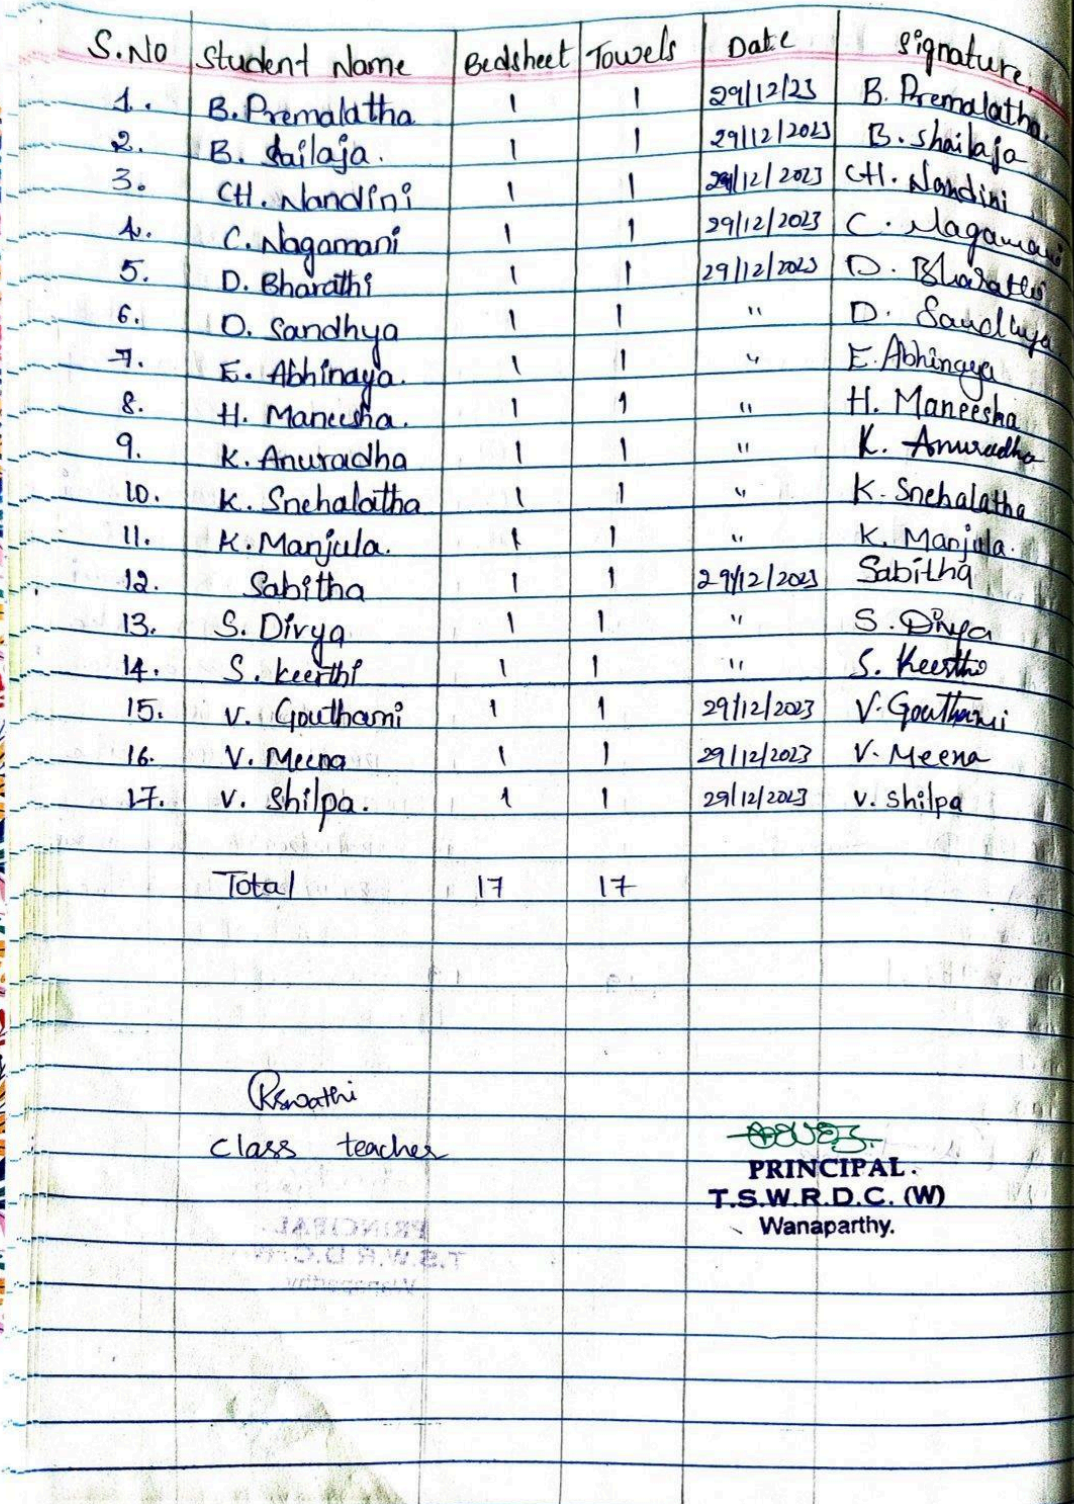 S.No Student Name Bedsheet Towels Date Signature.
1. B. Premalatha 1 1 29/12/23 B. Premalatha.
2. B. Sailaja. 1 1 29/12/2023 B. Shailaja
3. CH. Nandini 1 1 29/12/2023 CH. Nandini
4. C. Nagamani 1 1 29/12/2023 C. Nagamani
5. D. Bharathi 1 1 29/12/2023 D. Bharathi
6. D. Sandhya 1 1 " D. Sandhya
7. E. Abhinaya. 1 1 " E. Abhinaya
8. H. Maneesha. 1 1 " H. Maneesha
9. K. Anuradha 1 1 " K. Anuradha
10. K. Snehalatha 1 1 " K. Snehalatha
11. K. Manjula. 1 1 " K. Manjula.
12. Sabitha 1 1 29/12/2023 Sabitha
13. S. Divya 1 1 " S. Divya
14. S. Keerthi 1 1 " S. Keerthi
15. V. Gouthami 1 1 29/12/2023 V. Gouthami
16. V. Meena 1 1 29/12/2023 V. Meena
17. V. Shilpa. 1 1 29/12/2023 V. Shilpa
Total 17 17
class teacher
PRINCIPAL.
T.S.W.R.D.C. (W)
Wanaparthy.